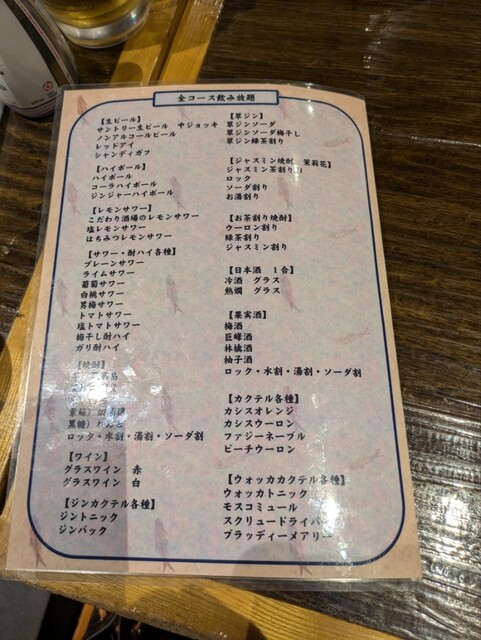 全コース飲み放題
【生ビール】
サントリー生ビール 中ジョッキ
ノンアルコールビール
レッドアイ
シャンディガフ
【ハイボール】
ハイボール
コーラハイボール
ジンジャーハイボール
【レモンサワー】
こだわり酒場のレモンサワー
塩レモンサワー
はちみつレモンサワー
【サワー・酎ハイ各種】
プレーンサワー
ライムサワー
葡萄サワー
白桃サワー
男梅サワー
トマトサワー
塩トマトサワー
梅干し酎ハイ
ガリ酎ハイ
【焼酎】
黒糖）れんと
ロック・水割・湯割・ソーダ割
【ワイン】
グラスワイン 赤
グラスワイン 白
【ジンカクテル各種】
ジントニック
ジンバック
【翠ジン】
翠ジンソーダ
翠ジンソーダ梅干し
翠ジン緑茶割り
【ジャスミン焼酎 茉莉花】
ジャスミン茶割り
ロック
ソーダ割り
お湯割り
【お茶割り焼酎】
ウーロン割り
緑茶割り
ジャスミン割り
【日本酒 1合】
冷酒 グラス
熱燗 グラス
【果実酒】
梅酒
巨峰酒
林檎酒
柚子酒
ロック・水割・湯割・ソーダ割
【カクテル各種】
カシスオレンジ
カシスウーロン
ファジーネーブル
ピーチウーロン
【ウォッカカクテル各種】
ウォッカトニック
モスコミュール
スクリュードライバー
ブラッディーメアリー